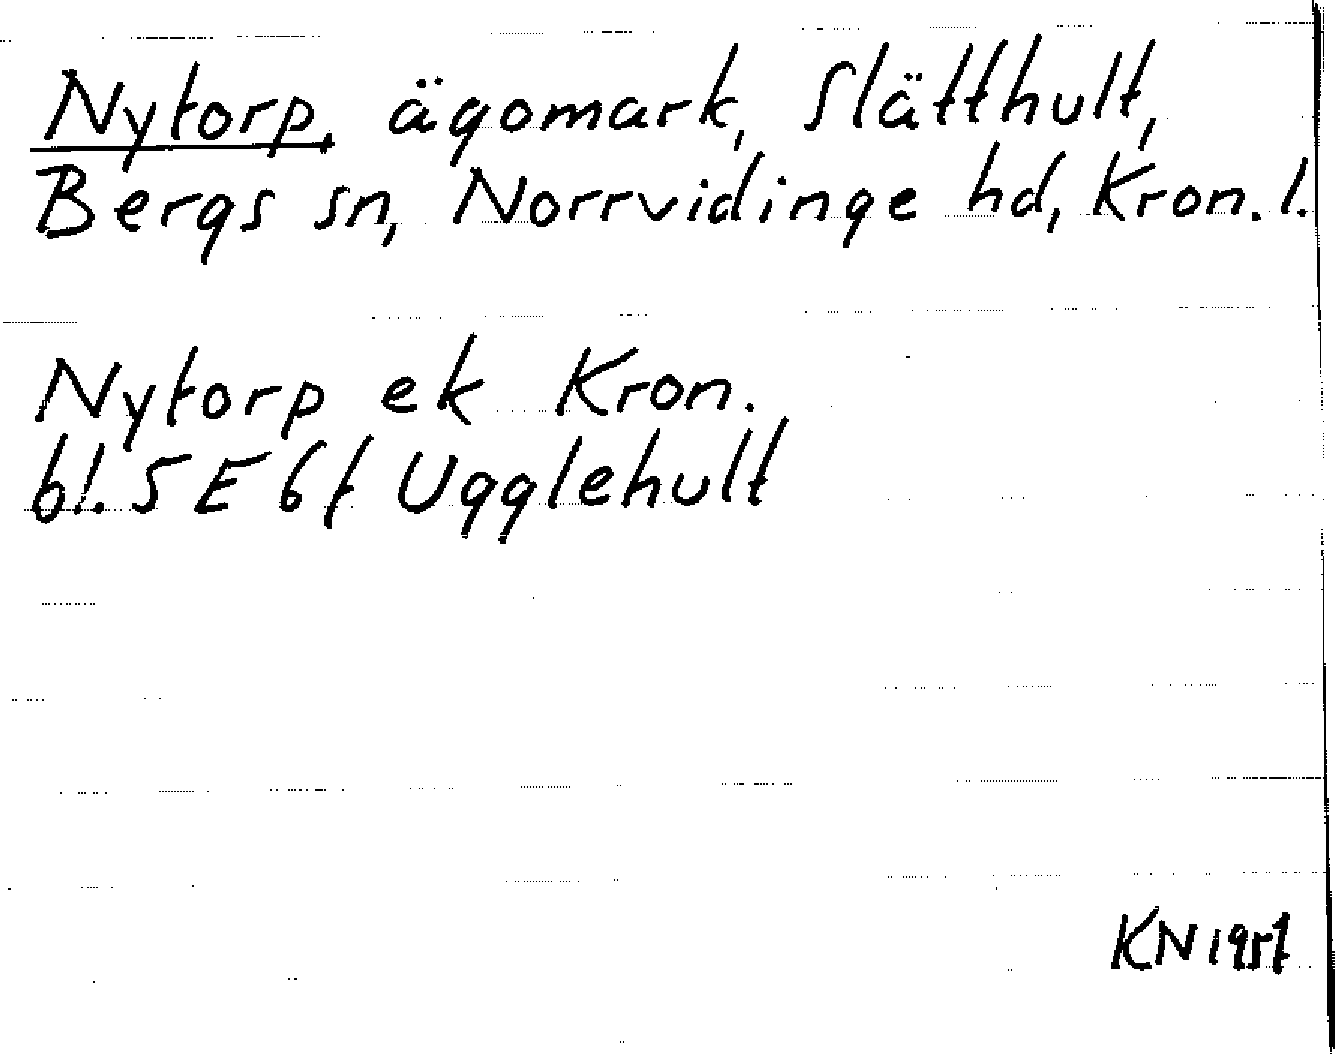 Nytorp, ägomark, Slätthult,
Bergs sn, Norrvidinge hd, Kron. l.
Nytorp ek Kron.
bl. 5 E 6 f Ugglehult
KN 1957